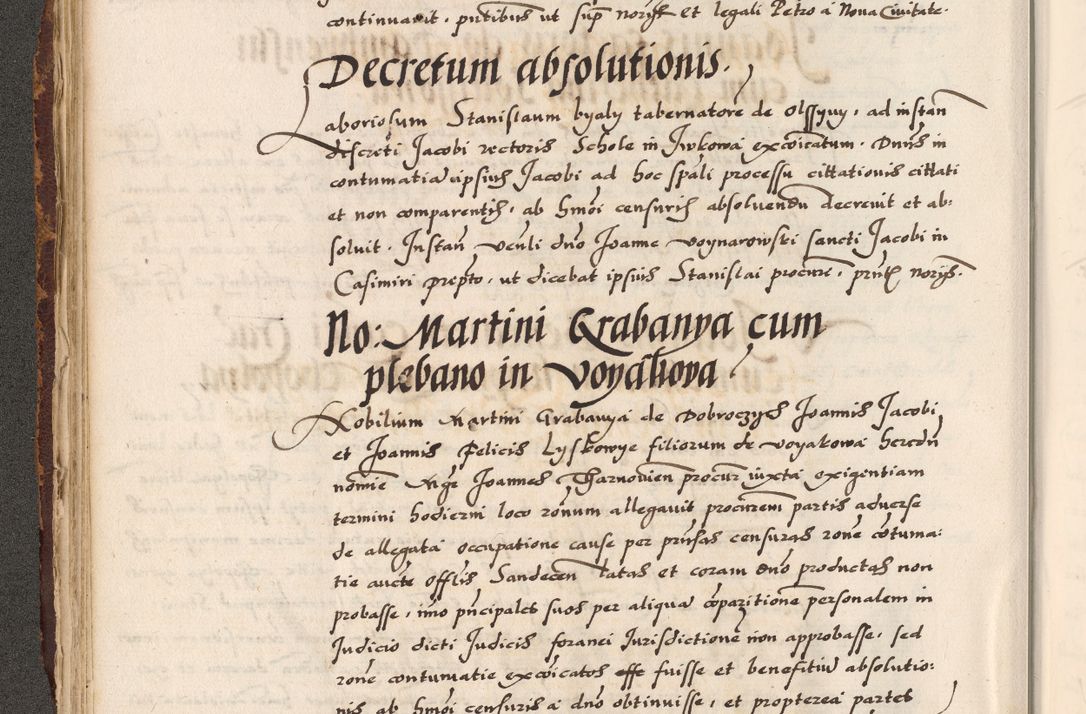 continuavit. pñtibus ut sup norijs et legali Petro à Nova Civitate.
Decretum absolutionis.
Laboriosum Stanislaum byaly tabernatore de Olssyny, ad instan
discreti Jacobi rectoris Schole in Iwkowa excõicatum. Dnus in
contumatia ipsius Jacobi ad hoc spãli processu cittationis cittati
et non comparentis, ab hmõi censuris absolvendu decrevit et ab:
solvit. Instañ veñli dno Joanne voynarowski sancti Jacobi in
Casimiri prepto, ut dicebat ipsius Stanislai procure, pñte norijs.
No: Martini Grabanya cum
plebano in voyakova
Nobilium Martini Grabanya de Dobroczyes Joannis Jacobi
et Joannis Felicis Lyskowye filiorum de voyakowa heredũ
nomiẽ Mgr Joannes Tharnovieñ procur iuxta exigentiam
termini hodierni loco roñum allegavit procurem partis adverse
de allegata occupatione cause per prusas censuras rone cõtuma:
tie aucte offlis Sandeceñ latas et coram dño productas non
probasse, imo pñcipales suos per aliquã cõparitionẽ personalem in
Judicio dicti Judicis foranei Jurisdictionẽ non approbasse, sed
rone contumatie excõicatos esse fuisse et benefitiũ absolutio:
nis ab hmõi censuris a dno obtinuisse, et propterea partes